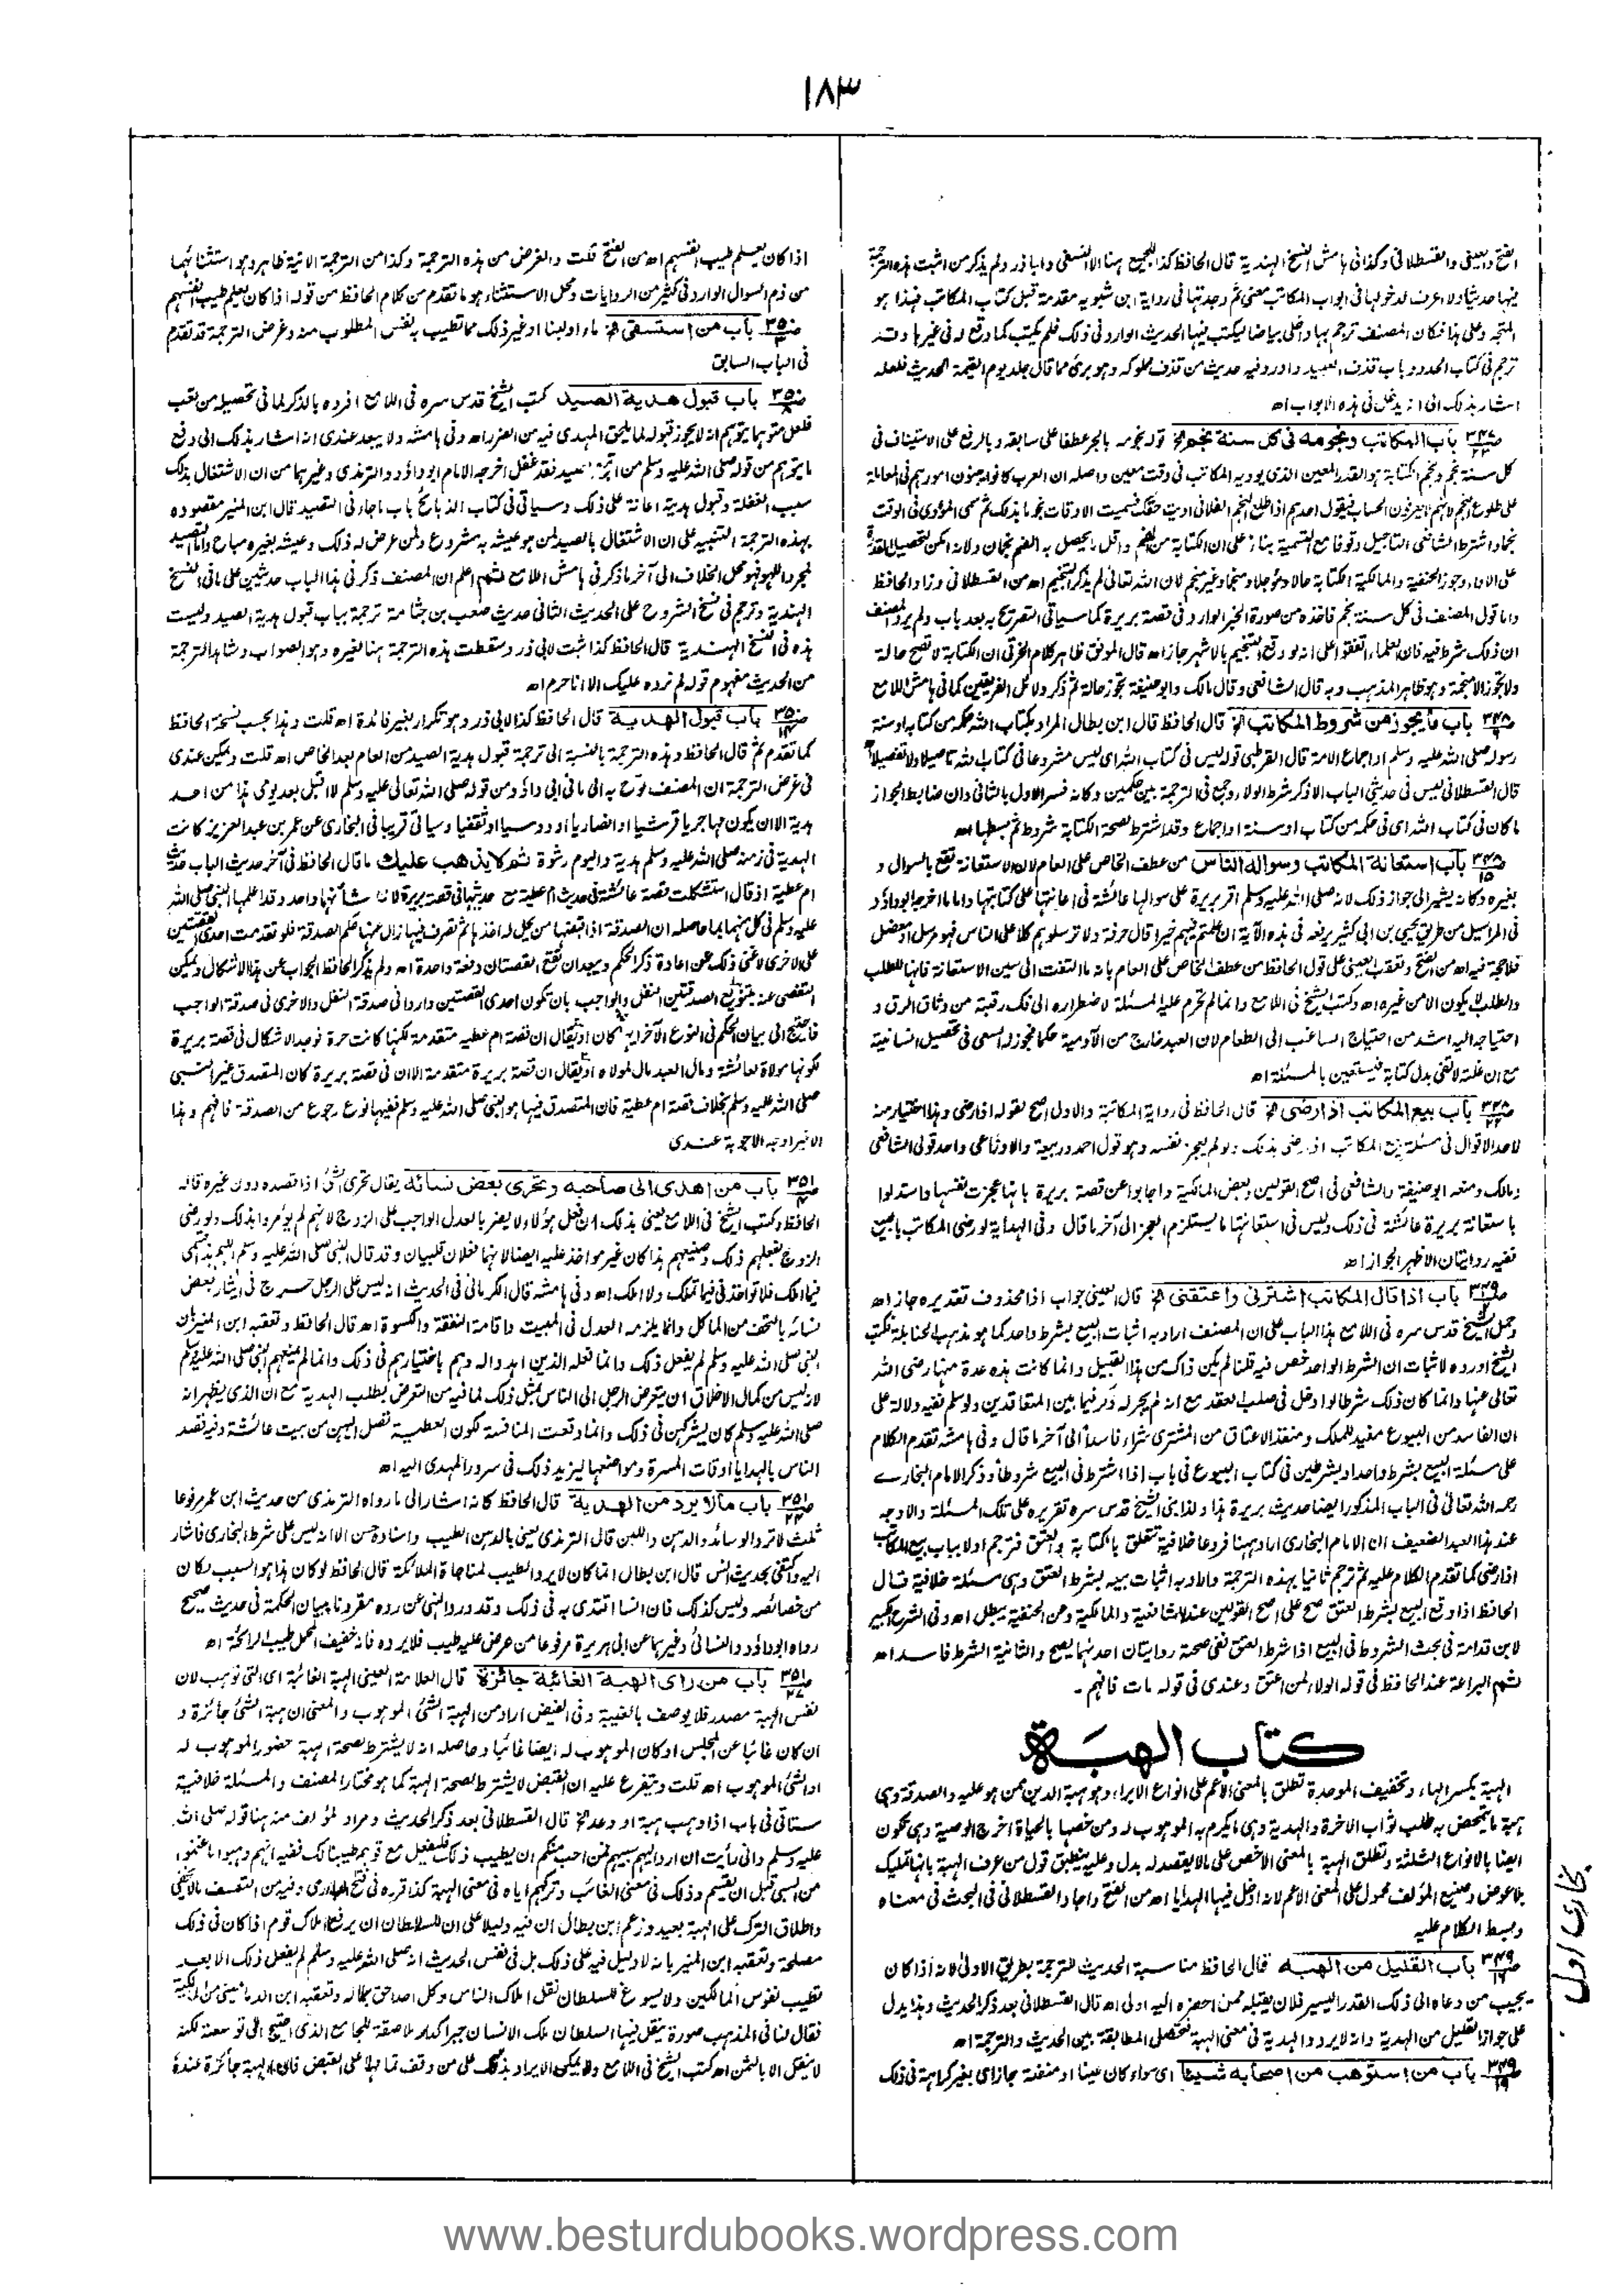 ١٨٣
الفتح والعينى والقسطلانى وكذا فى هامش النسخ الهندية قال الحافظ كذا للجميع هنا الا النسفى وابا ذر ولم يذكر من اثبت هذه الترجمة
فيها حديثا ولا اعرف لدخولها فى ابواب المكاتب معنى ثم وجدتها فى رواية ابن شبويه مقدمة قبل كتاب المكاتب فهذا هو
المتجه وعلى هذا فكان المصنف ترجم بها واخلى بياضا ليكتب فيها الحديث الوارد فى ذلك فلم يكتب كما وقع له فى غيرها وقد
ترجم فى كتاب الحدود باب قذف العبيد واورد فيه حديث من قذف مملوكه وهو برئ مما قال جلد يوم القيمة الحديث فلعله
اشار بذلك الى انه يدخل فى هذه الابواب اه
باب المكاتب ونجومه فى كل سنة نجم الخ قوله نجومه بالجر عطفا على سابقه وبالرفع على الاستيناف فى
كل سنة نجم ونجم الكتابة هو القدر المعين الذى يوديه المكاتب فى وقت معين واصله ان العرب كانوا يبنون امورهم فى المعاملة
على طلوع النجم لانهم لا يعرفون الحساب فيقول احدهم اذا طلع النجم الفلانى اديت حقك فسميت الاوقات نجوما بذلك ثم سمى المؤدى فى الوقت
نجما واشترط الشافعى التاجيل وقوفا مع التسمية بناء على ان الكتابة من الضم واقل ما يحصل به الضم نجمان ولانه امكن لتحصيل القدرة
على الاداء وجوز الحنفية والمالكية الكتابة حالا ومؤجلا ومنجما وغير منجم لان الله تعالى لم يذكر التنجيم اه من القسطلانى وزاد الحافظ
واما قول المصنف فى كل سنة نجم فاخذه من صورة الخبر الوارد فى قصة بريرة كما سياتى التصريح به بعد باب ولم يرد المصنف
ان ذلك شرط فيه فان العلماء اتفقوا على انه لو وقع التنجيم بالاشهر جاز اه قال الموفق ظاهر كلام الخرقى ان الكتابة لا تصح حالة
ولا تجوز الا منجمة وهو ظاهر المذهب وبه قال الشافعى وقال مالك وابو حنيفة تجوز حالة ثم ذكر دلائل الفريقين كما فى هامش اللامع
باب ما يجوز من شروط المكاتب الخ قال الحافظ قال ابن بطال المراد بكتاب الله حكمه من كتابه او سنة
رسوله صلى الله عليه وسلم او اجماع الامة قال القرطبى قوله ليس فى كتاب الله اى ليس مشروعا فى كتاب الله تاصيلا ولا تفصيلا
قال القسطلانى ليس فى حديثى الباب الا ذكر شرط الولاء وجمع فى الترجمة بين حكمين وكانه فسر الاول بالثانى وان ضابط الجواز
ما كان فى كتاب الله اى فى حكمه من كتاب او سنة او اجماع وقد اشترط لصحة الكتابة شروط ثم بسطها اه
باب استعانة المكاتب وسواله الناس من عطف الخاص على العام لان الاستعانة تقع بالسوال و
بغيره وكانه يشير الى جواز ذلك لانه صلى الله عليه وسلم اقر بريرة على سوالها عائشة فى اعانتها على كتابتها واما ما اخرجه ابوداؤد
فى المراسيل من طريق يحيى بن ابى كثير يرفعه فى هذه الآية ان علمتم فيهم خيرا قال حرفة ولا ترسلوهم كلا على الناس فهو مرسل او معضل
فلا حجة فيه اه من الفتح وتعقب العينى على قول الحافظ من عطف الخاص على العام بانه ما التفت الى سين الاستعانة فانها للطلب
والطلب لا يكون الا من غيره اه وكتب الشيخ فى اللامع وانما لم تحرم عليه المسئلة لاضطراره الى فك رقبة من وثاق الرق و
احتياجه اليه اشد من احتياج الساغب الى الطعام لان العبد خارج من الآدمية حكما فجوز له السعى فى تحصيل انسانية
مع ان غلته لا تفى بدل كتابته فيستعين بالمسئلة اه
باب بيع المكاتب اذا رضى الخ قال الحافظ فى رواية المكاتبة والاول اصح لقوله اذا رضى وهذا اختيار منه
لاحد الاقوال فى مسئلة بيع المكاتب اذا رضى بذلك ولو لم يعجز نفسه وهو قول احمد وربيعة والاوزاعى واحد قولى الشافعى
ومالك ومنعه ابو حنيفة والشافعى فى اصح القولين وبعض المالكية واجابوا عن قصة بريرة بانها عجزت نفسها واستدلوا
باستعانة بريرة عائشة فى ذلك وليس فى استعانتها ما يستلزم العجز الى آخر ما قال وفى الهداية لو رضى المكاتب بالبيع
ففيه روايتان الاظهر الجواز اه
باب اذا قال المكاتب اشترنى واعتقنى الخ قال العينى جواب اذا محذوف تقديره جاز اه
وحمل الشيخ قدس سره فى اللامع هذا الباب على ان المصنف اراد به اثبات البيع بشرط واحد كما هو مذهب الحنابلة فكتب
الشيخ اورده لاثبات ان الشرط الواحد خص فيه قلنا لم يكن ذاك من هذا القبيل وانما كانت هذه عدة منها رضى الله
تعالى عنها وانما كان ذلك شرطا لو ادخل فى صلب العقد مع انه لم يجر له ذكر فيما بين المتعاقدين ولو سلم ففيه دلالة على
ان الفاسد من البيوع مفيد للملك ومنفذ الاعتاق من المشترى شراء فاسدا الى آخر ما قال وفى هامشه تقدم الكلام
على مسئلة البيع بشرط واحد او بشرطين فى كتاب البيوع فى باب اذا اشترط فى البيع شروطا وذكر الامام البخارى
رحمه الله تعالى فى الباب المذكور ايضا حديث بريرة هذا ولذا بنى الشيخ قدس سره تقريره على تلك المسئلة والاوجه
عند هذا العبد الضعيف ان الامام البخارى اراد ههنا فروعا خلافية تتعلق بالكتابة والعتق فترجم اولا بباب بيع المكاتب
اذا رضى كما تقدم الكلام عليه ثم ترجم ثانيا بهذه الترجمة واراد به اثبات بيعه بشرط العتق وهى مسئلة خلافية قال
الحافظ اذا وقع البيع بشرط العتق صح على اصح القولين عند الشافعية والمالكية وعن الحنفية يبطل اه وفى الشرح الكبير
لابن قدامة فى بحث الشروط فى البيع اذا شرط العتق ففى صحته روايتان احدهما يصح والثانية الشرط فاسد اه
ثم البراعة عند الحافظ فى قوله الولاء لمن اعتق وعندى فى قوله مات فافهم ۔
كتاب الهبة
الهبة بكسر الهاء وتخفيف الموحدة تطلق بالمعنى الاعم على انواع الابراء وهو هبة الدين ممن هو عليه والصدقة وهى
هبة ما يتمحض به طلب ثواب الاخرة والهدية وهى ما يكرم به الموهوب له ومن خصها بالحياة اخرج الوصية وهى تكون
ايضا بالانواع الثلثة وتطلق الهبة بالمعنى الاخص على ما لا يقصد له بدل وعليه ينطبق قول من عرف الهبة بانها تمليك
بلا عوض وصنيع المؤلف محمول على المعنى الاعم لانه ادخل فيها الهدايا اه من الفتح واجاد القسطلانى فى البحث فى معناه
وبسط الكلام عليه
باب القليل من الهبة قال الحافظ مناسبة الحديث للترجمة بطريق الاولى لانه اذا كان
يجيب من دعاه الى ذلك القدر اليسير فلان يقبله ممن احضره اليه اولى اه قال القسطلانى بعد ذكر الحديث وهذا يدل
على جواز القليل من الهدية وانه لا يرد والهدية فى معنى الهبة فتحصل المطابقة بين الحديث والترجمة اه
باب من استوهب من اصحابه شيئا اى سواء كان عينا او منفعة جاز اى بغير كراهة فى ذلك
اذا كان يعلم طيب انفسهم اه من الفتح قلت والغرض من هذه الترجمة وكذا من الترجمة الاتية ظاهر وهو استثنائهما
من ذم السوال الوارد فى كثير من الروايات ومحل الاستثناء هو ما تقدم من كلام الحافظ من قوله اذا كان يعلم طيب انفسهم
باب من استسقى الخ ماء او لبنا او غير ذلك مما تطيب به نفس المطلوب منه وغرض الترجمة قد تقدم
فى الباب السابق
باب قبول هدية الصيد كتب الشيخ قدس سره فى اللامع افرده بالذكر لما فى تحصيله من تعب
فلعل متوهما يتوهم انه لا يجوز قبوله لما يلحق المهدى فيه من الضرر اه وفى هامشه ولا يبعد عندى انه اشار بذلك الى دفع
ما يتوهم من قوله صلى الله عليه وسلم من اتبع الصيد فقد غفل اخرجه الامام ابوداؤد والترمذى وغيرهما من ان الاشتغال بذلك
سبب الغفلة وقبول هديته اعانة على ذلك وسياتى فى كتاب الذبائح باب ما جاء فى التصيد قال ابن المنير مقصوده
بهذه الترجمة التنبيه على ان الاشتغال بالصيد لمن هو عيشه به مشروع ولمن عرض له ذلك وعيشه بغيره مباح واما التصيد
لمجرد اللهو فهو محل الخلاف الى آخر ما ذكر فى هامش اللامع ثم اعلم ان المصنف ذكر فى هذا الباب حديثين على ما فى النسخ
الهندية وترجم فى نسخ الشروح على الحديث الثانى حديث صعب بن جثامة ترجمة بباب قبول هدية الصيد وليست
هذه فى النسخ الهندية قال الحافظ كذا ثبت لابى ذر وسقطت هذه الترجمة هنا لغيره وهو الصواب وشاهد الترجمة
من الحديث مفهوم قوله لم نرده عليك الا انا حرم اه
باب قبول الهدية قال الحافظ كذا لابى ذر وهو تكرار بغير فائدة اه قلت وهذا بحسب نسخة الحافظ
كما تقدم ثم قال الحافظ وهذه الترجمة بالنسبة الى ترجمة قبول هدية الصيد من العام بعد الخاص اه قلت ويمكن عندى
فى غرض الترجمة ان المصنف لوّح به الى ما فى ابى داؤد من قوله صلى الله تعالى عليه وسلم لا اقبل بعد يومى هذا من احد
هدية الا ان يكون مهاجريا قرشيا او انصاريا او دوسيا او ثقفيا وسياتى قريبا فى البخارى عن عمر بن عبد العزيز كانت
الهدية فى زمنه صلى الله عليه وسلم هدية واليوم رشوة ثم لا يذهب عليك ما قال الحافظ فى آخر حديث الباب حديث
ام عطية اذ قال استشكلت قصة عائشة فى حديث ام عطية مع حديثها فى قصة بريرة لان شأنهما واحد وقد اعلمها النبى صلى الله
عليه وسلم فى كل منهما بما حاصله ان الصدقة اذا قبضها من يحل له اخذها ثم تصرف فيها زال عنها حكم الصدقة فلو تقدمت احدى القصتين
على الاخرى لاغنى ذلك عن اعادة ذكر الحكم ويبعد ان تقع القصتان دفعة واحدة اه ولم يذكر الحافظ الجواب عن هذا الاشكال ويمكن
التفصى عنه بتنويع الصدقتين النفل والواجب بان تكون احدى القصتين واردا فى صدقة النفل والاخرى فى صدقة الواجب
فاحتيج الى بيان الحكم فى النوع الآخر او يقال ان قصة ام عطية متقدمة لكنها كانت حرة فوجد الاشكال فى قصة بريرة
لكونها مولاة لعائشة ومال العبد مال لمولاه او يقال ان قصة بريرة متقدمة الا ان فى قصة بريرة كان المتصدق غير النبى
صلى الله عليه وسلم بخلاف قصة ام عطية فان المتصدق فيها هو النبى صلى الله عليه وسلم ففيها نوع رجوع من الصدقة فافهم وهذا
الاخير اوجه الاجوبة عندى
باب من اهدى الى صاحبه وتحرى بعض نسائه يقال تحرى الشئ اذا قصده دون غيره قاله
الحافظ وكتب الشيخ فى اللامع يعنى بذلك ان فعل هؤلاء لا يضر بالعدل الواجب على الزوج لانهم لم يؤمروا بذلك ولو رضى
الزوج بفعلهم ذلك وصنيعهم هذا كان غير مواخذ عليه ايضا لانهما فعلان قلبيان وقد قال النبى صلى الله عليه وسلم اللهم هذا قسمى
فيما املك فلا تواخذنى فيما تملك ولا املك اه وفى هامشه قال الكرمانى فى الحديث انه ليس على الرجل حرج فى ايثار بعض
نسائه بالتحف من الماكل وانما يلزمه العدل فى المبيت واقامة النفقة والكسوة اه قال الحافظ وتعقبه ابن المنير بان
النبى صلى الله عليه وسلم لم يفعل ذلك وانما فعله الذين اهدوا له وهم باختيارهم فى ذلك وانما لم يمنعهم النبى صلى الله عليه وسلم
لانه ليس من كمال الاخلاق ان يتعرض الرجل الى الناس بمثل ذلك لما فيه من التعرض بطلب الهدية مع ان الذى يظهر انه
صلى الله عليه وسلم كان يشركهن فى ذلك وانما وقعت المنافسة لكون العطية تصل اليهن من بيت عائشة وفيه قصد
الناس بالهدايا اوقات المسرة ومواضعها ليزيد ذلك فى سرور المهدى اليه اه
باب ما لا يرد من الهدية قال الحافظ كانه اشار الى ما رواه الترمذى من حديث ابن عمر مرفوعا
ثلث لا ترد الوسائد والدهن واللبن قال الترمذى يعنى بالدهن الطيب واسناده حسن الا انه ليس على شرط البخارى فاشار
اليه واكتفى بحديث انس قال ابن بطال انما كان لا يرد الطيب لمناجاة الملائكة قال الحافظ لو كان هذا هو السبب لكان
من خصائصه وليس كذلك فان انسا اقتدى به فى ذلك وقد ورد النهى عن رده مقرونا ببيان الحكمة فى حديث صحيح
رواه ابوداؤد والنسائى وغيرهما عن ابى هريرة مرفوعا من عرض عليه طيب فلا يرده فانه خفيف المحمل طيب الرائحة اه
باب من راى الهبة الغائبة جائزة قال العلامة العينى الهبة الغائبة اى التى توهب لان
نفس الهبة مصدر فلا يوصف بالغيبة وفى الفيض اراد من الهبة الشئ الموهوب والمعنى ان هبة الشئ جائزة و
ان كان غائبا عن المجلس او كان الموهوب له ايضا غائبا وحاصله انه لا يشترط لصحة الهبة حضور الموهوب له
او الشئ الموهوب اه قلت ويتفرع عليه ان القبض لا يشترط لصحة الهبة كما هو مختار المصنف والمسئلة خلافية
ستاتى فى باب اذا وهب هبة او وعد الخ قال القسطلانى بعد ذكر الحديث ومراد المؤلف منه هنا قوله صلى الله
عليه وسلم وانى رأيت ان ارد اليهم سبيهم فمن احب منكم ان يطيب ذلك فليفعل مع قولهم طيبنا لك ففيه انهم وهبوا ما غنموا
من السبى قبل ان يقسم وذلك فى معنى الغائب وتركهم اياه فى معنى الهبة كذا قرره فى فتح البارى وفيه من التعسف ما لا يخفى
واطلاق الترك على الهبة بعيد وزعم ابن بطال ان فيه دليلا على ان للسلطان ان يرفع املاك قوم اذا كان فى ذلك
مصلحة وتعقبه ابن المنير بانه لا دليل فيه على ذلك بل فى نفس الحديث انه صلى الله عليه وسلم لم يفعل ذلك الا بعد
تطييب نفوس المالكين ولا يسوغ للسلطان نقل املاك الناس وكل احد احق بماله وتعقبه ابن الدمامينى من المالكية
فقال لنا فى المذهب صورة ينقل فيها السلطان ملك الانسان جبرا كدار ملاصقة للجامع الذى احتيج الى توسعته لكنه
لا ينقل الا بالثمن اه كتب الشيخ فى اللامع ولا يمكن الايراد بذلك على من وقف تمامها على القبض فان الهبة جائزة عنده
بخارى اول
www.besturdubooks.wordpress.com